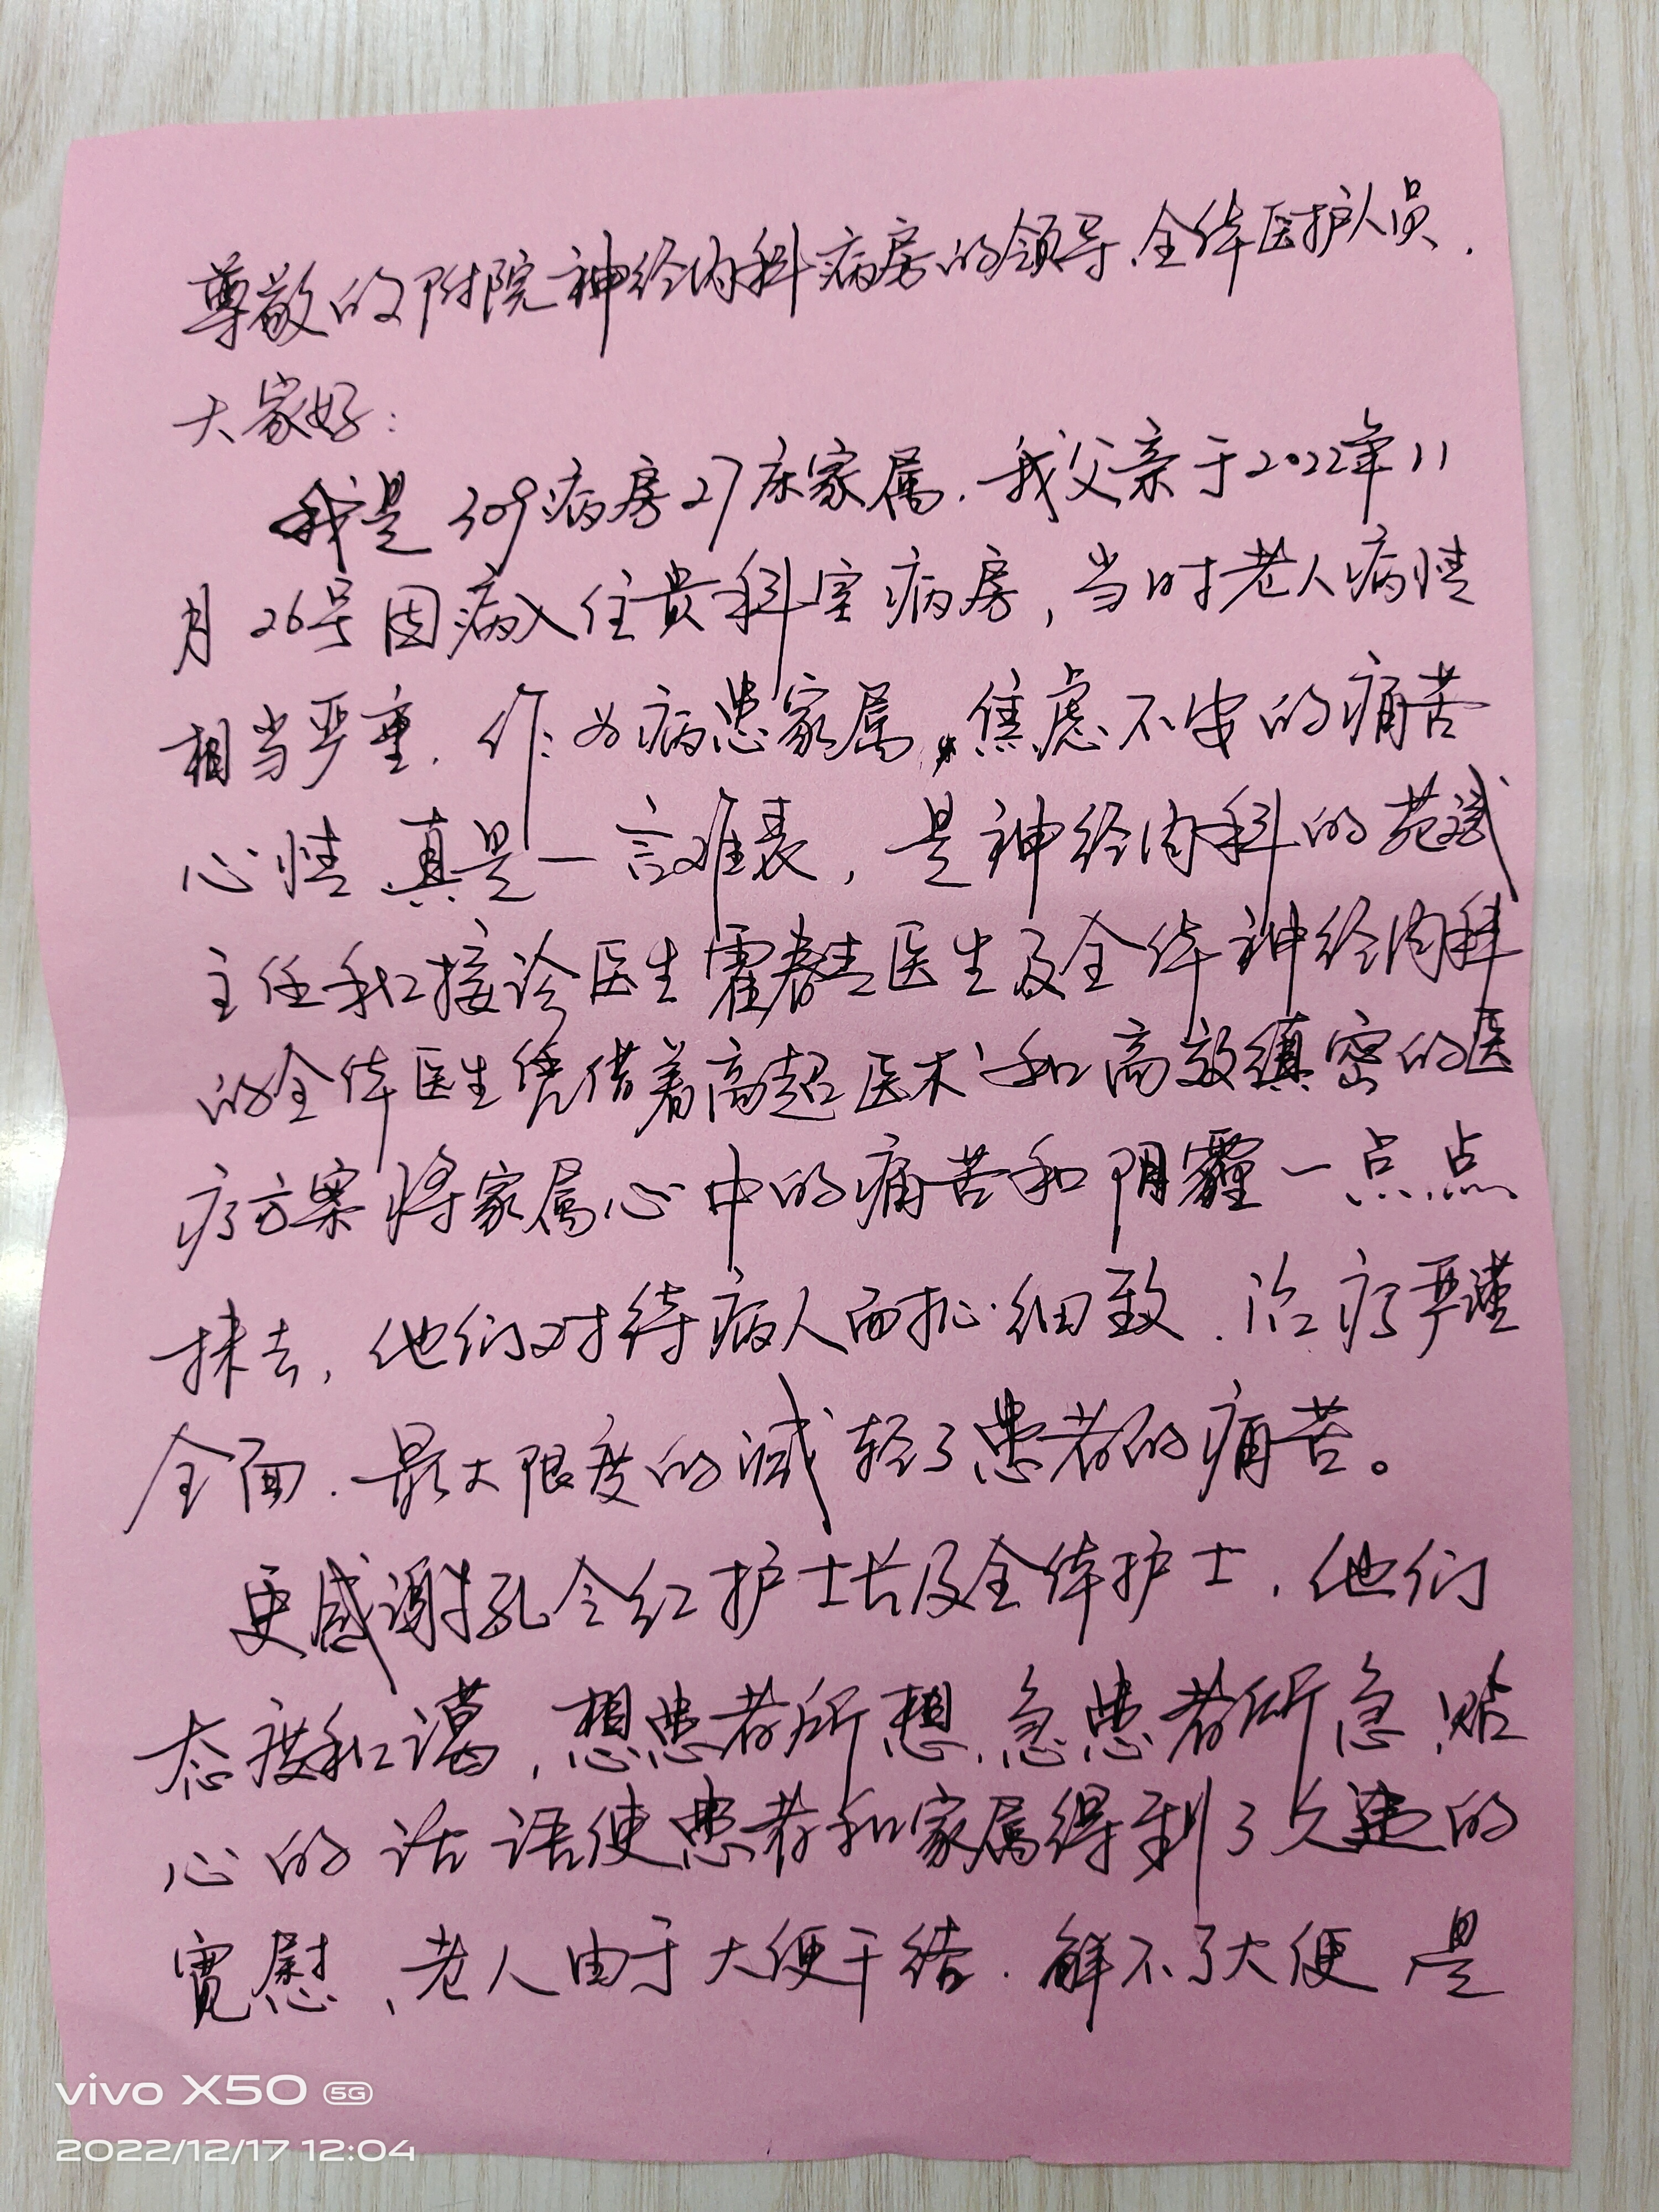 尊敬的附院神经内科病房的领导、全体医护人员.
大家好:
我是309病房27床家属.我父亲于2022年11
月26号因病入住贵科室病房,当时老人病情
相当严重.作为病患家属,焦虑不安的痛苦
心情真是一言难表,是神经内科的苑斌
主任和接诊医生霍春青医生及全体神经内科
的全体医生凭借着高超医术和高效缜密的医
疗方案将家属心中的痛苦和阴霾一点点
抹去,他们对待病人面热心细致.治疗严谨
全面.最大限度的减轻了患者的痛苦。
更感谢孔令红护士长及全体护士.他们
态度和蔼,想患者所想.急患者所急,贴
心的话语使患者和家属得到了久违的
宽慰、老人由于大便干结.解不了大便是
vivo X50 5G
2022/12/17 12:04